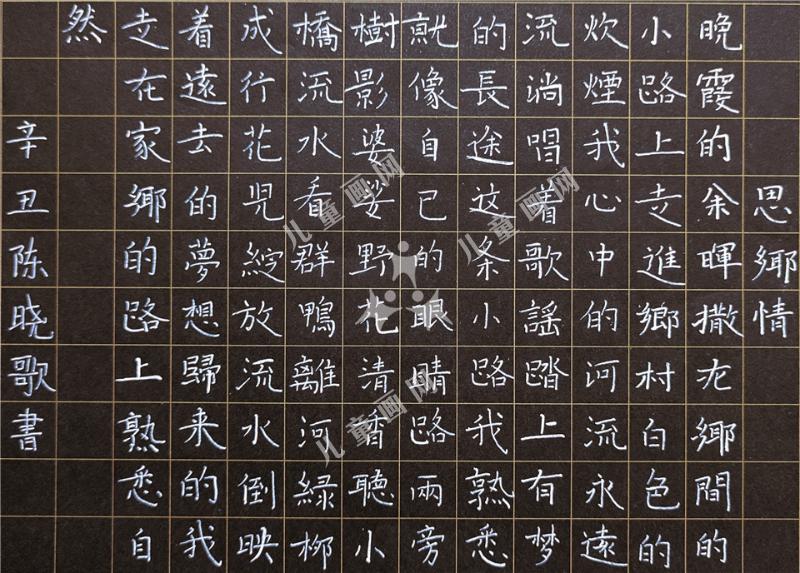 思鄉情
晚霞的余暉撒在鄉間的
小路上走進鄉村白色的
炊煙我心中的河流永遠
流淌唱着歌謡踏上有梦
的長途这条小路我熟悉
就像自己的眼睛路兩旁
樹影婆娑野花清香聽小
橋流水看群鴨離河緑柳
成行花児綻放流水倒映
着遠去的夢想歸来的我
走在家鄉的路上熟悉自
然
辛丑陈晓歌書
儿童画网
儿童画网
儿童画网